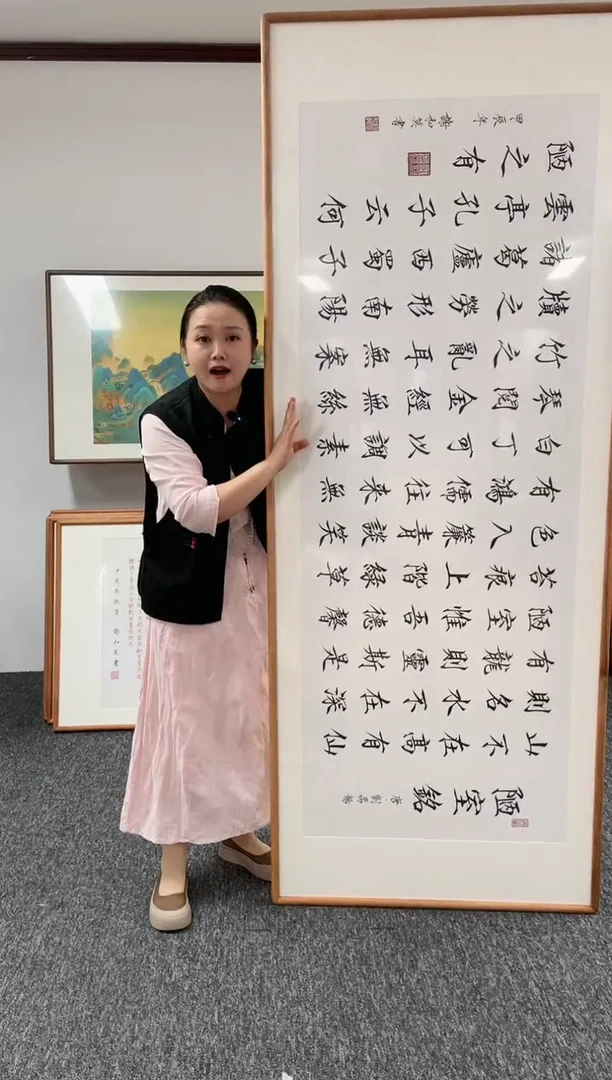 陋室銘 唐 劉禹錫
山不在高有仙
則名水不在深
有龍則靈斯是
陋室惟吾德馨
苔痕上階綠草
色入簾青談笑
有鴻儒往來無
白丁可以調素
琴閱金經無絲
竹之亂耳無案
牘之勞形南陽
諸葛廬西蜀子
雲亭孔子云何
陋之有
甲辰年 謝 書